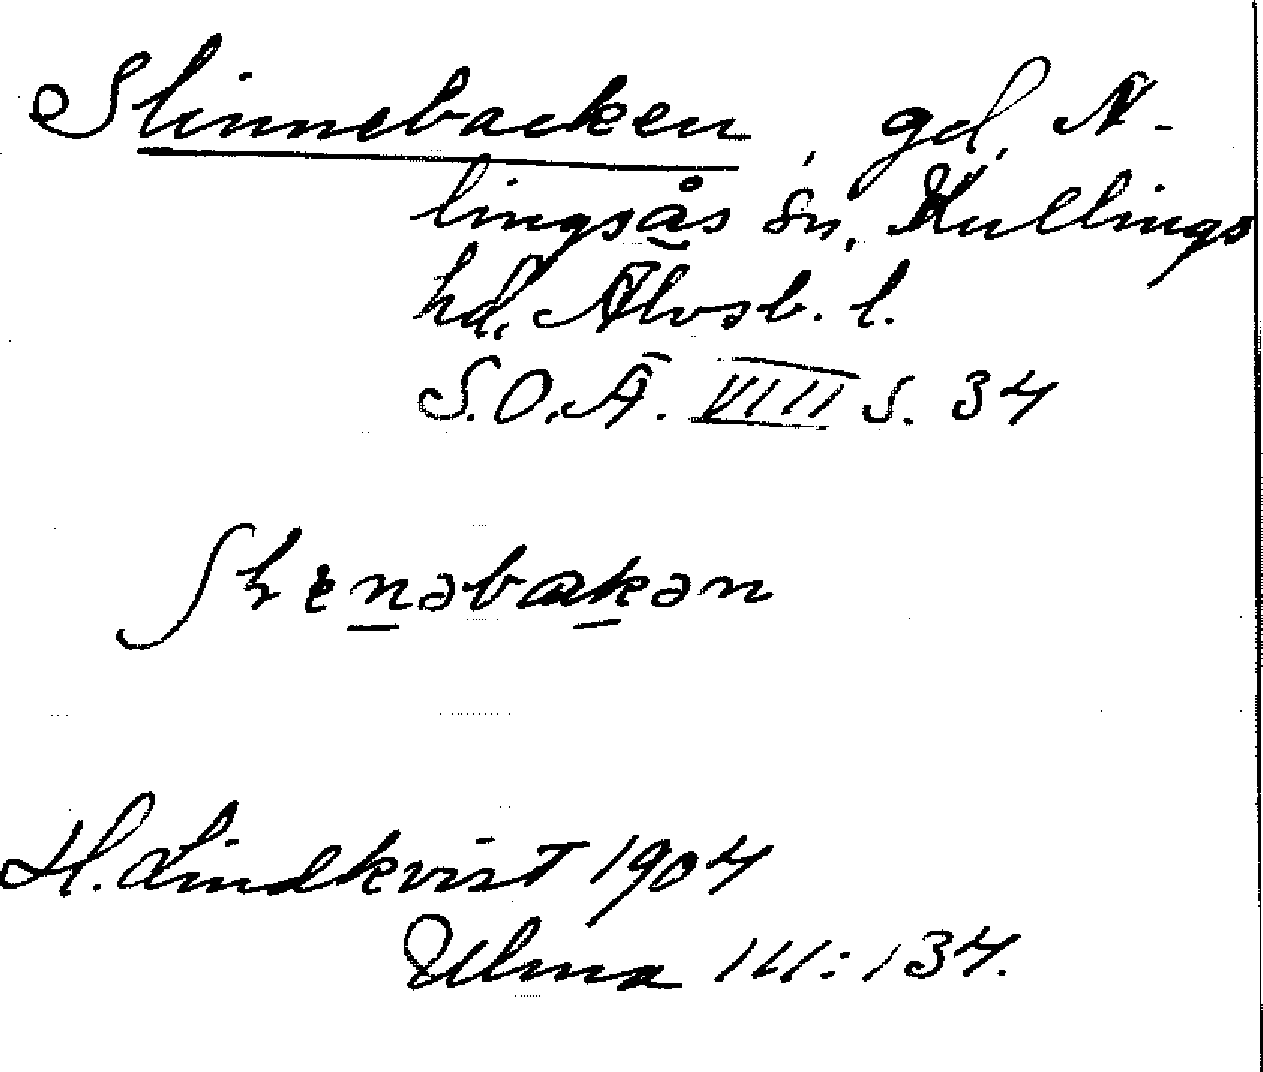 Slinnebacken, gd, A-
lingsås sn, Kullings
hd, Älvsb. l.
S.O.Ä. VIII s. 34
H. Lindkvist 1904
Ulma III:134.